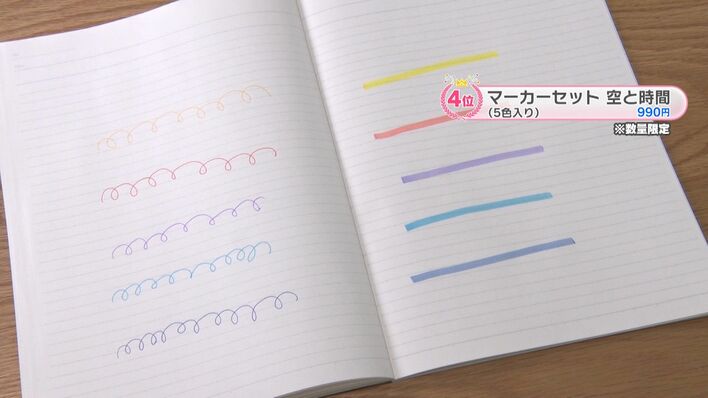 4位
マーカーセット 空と時間
(5色入り) 990円
※数量限定